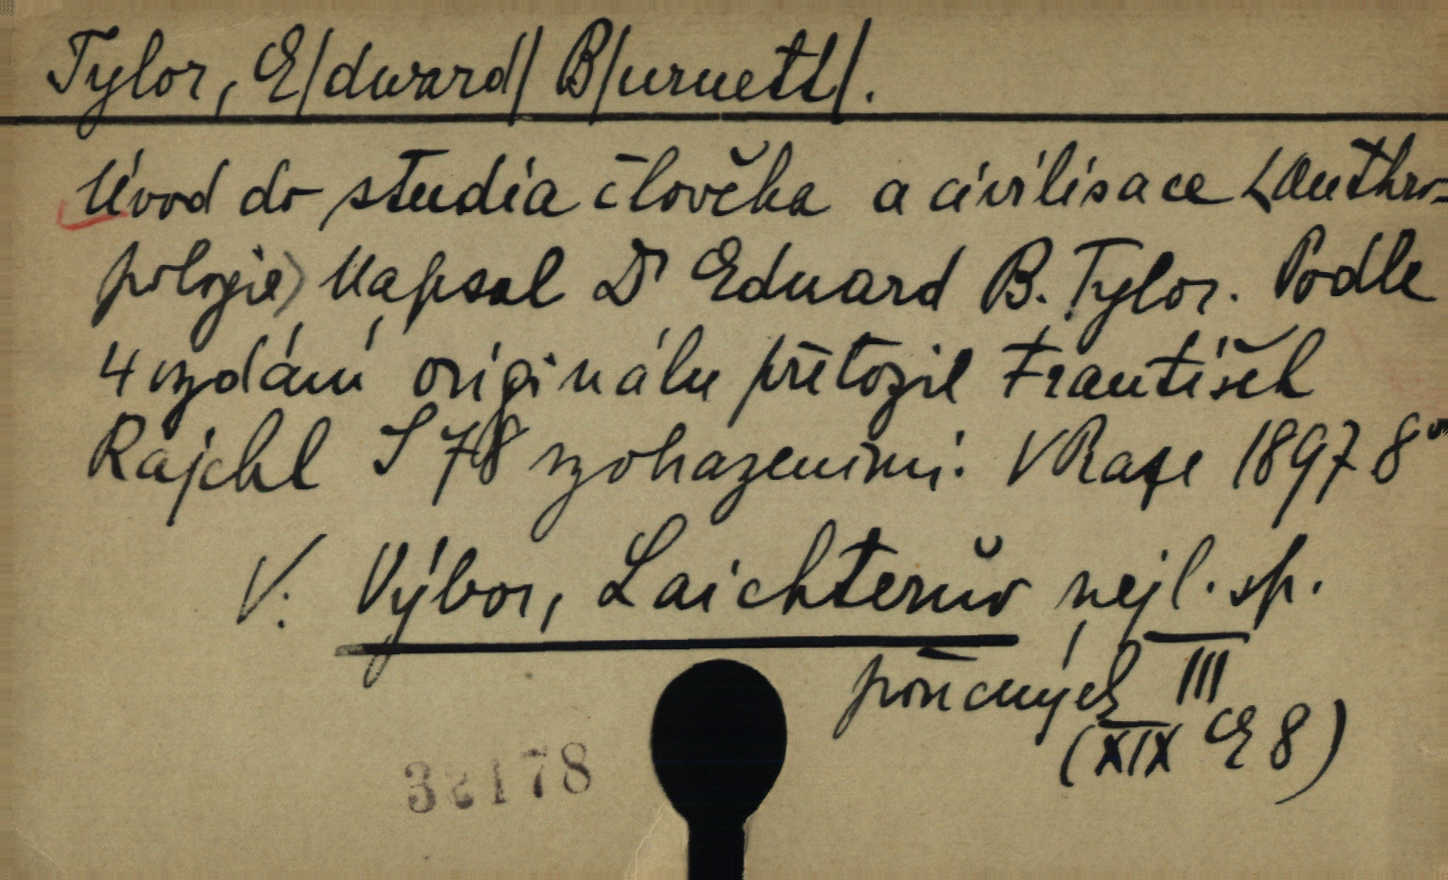 Tylor, E/dward/ B/urnett/.
Úvod do studia člověka a civilisace (Anthro-
pologie) Napsal Dr Edward B. Tylor. Podle
4 vydání originálu přeložil František
Rajchl S 78 vyobrazeními. V Praze 1897 8°
V. Výbor, Laichterův nejl. sp.
poučných III
(XIX E 8)
32178